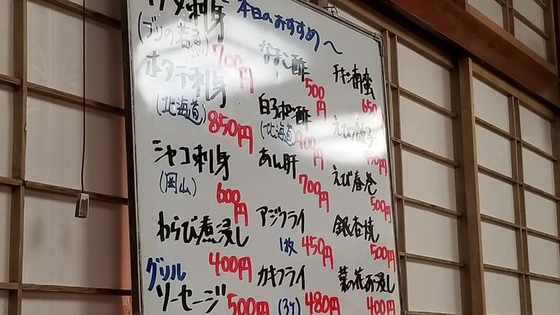 本日のおすすめ〜
刺身
(ブリの若魚)
700円
ホタテ刺身
(北海道)
850円
シャコ刺身
(岡山)
600円
わらび煮浸し
400円
グリル
ソーセージ
500円
なまこ酢
500円
白子ポン酢
(北海道)
円
あん肝
700円
アジフライ
1枚 450円
カキフライ
(3ケ) 480円
チキン南蛮
650
えび
円
えび春巻
500円
銀杏焼
500円
菜の花お浸し
400円